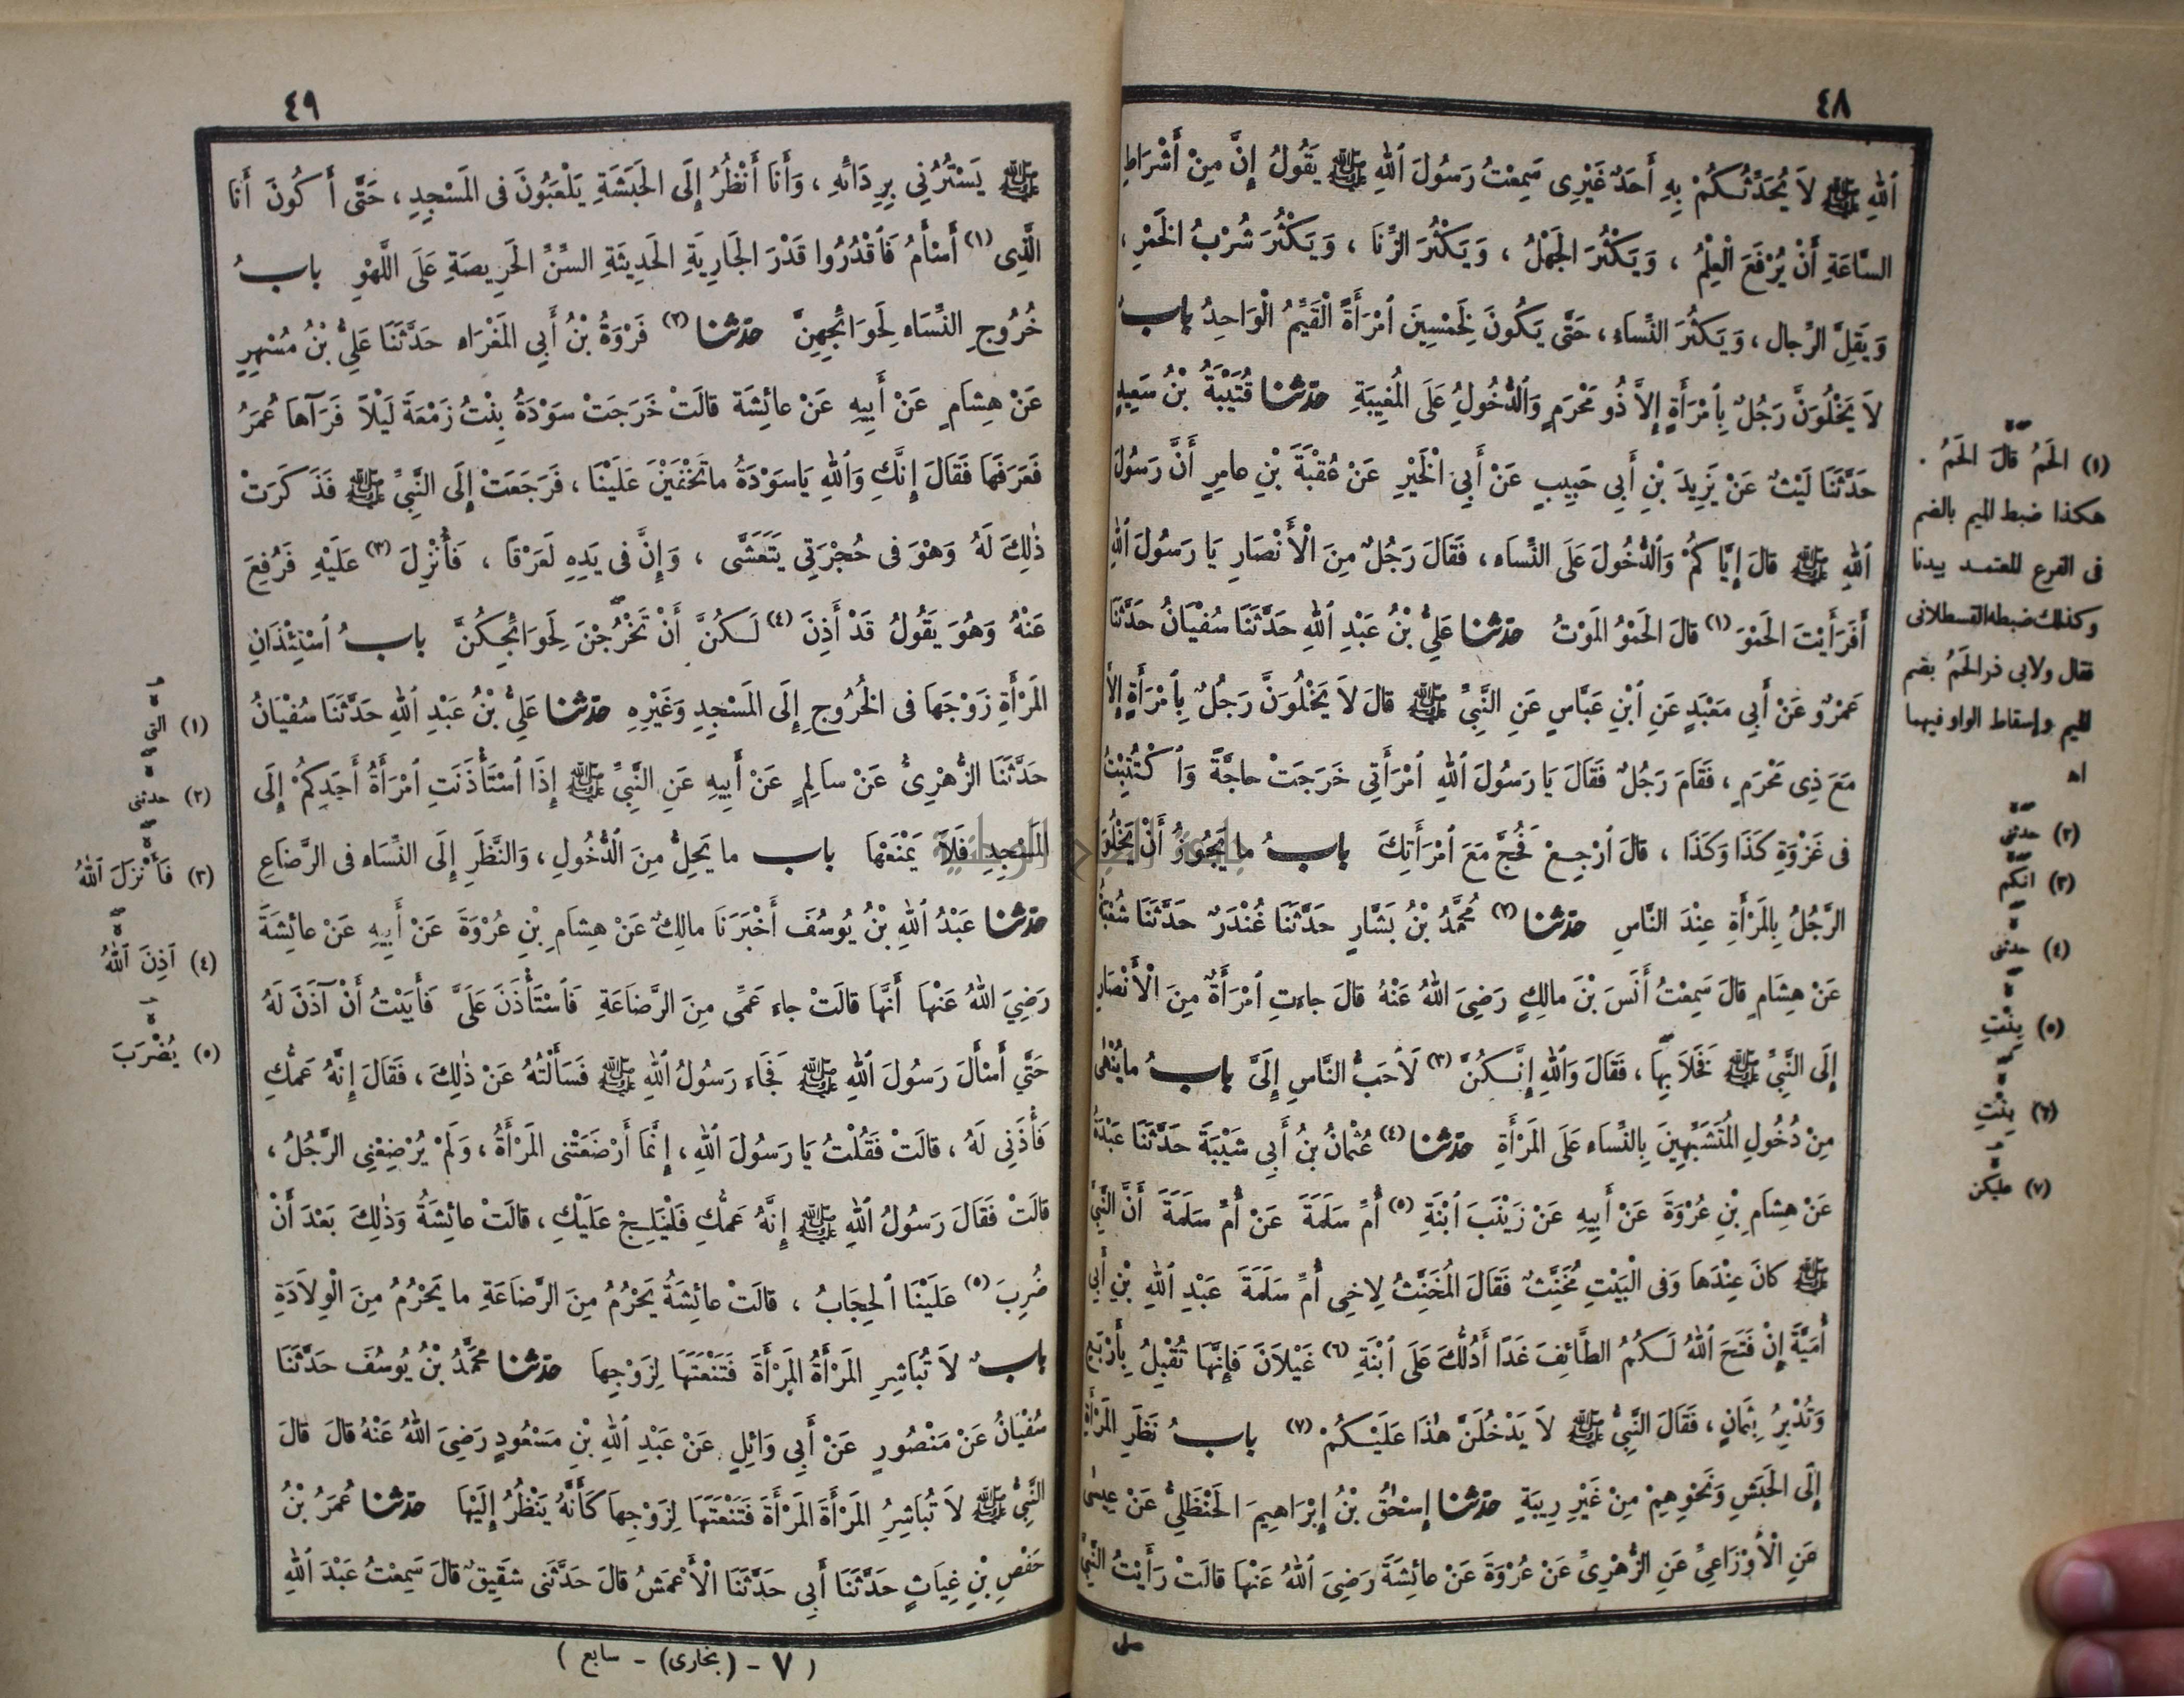 ٤٨
ٱللهِ ﷺ لاَ يُحَدِّثُكُمْ بِهِ أَحَدٌ غَيْرِى سَمِعْتُ رَسُولَ ٱللهِ ﷺ يَقُولُ إِنَّ مِنْ أَشْرَاطِ
السَّاعَةِ أَنْ يُرْفَعَ الْعِلْمُ ، وَيَكْثُرَ الجَهْلُ ، وَيَكْثُرَ الزِّنَا ، وَيَكْثُرَ شُرْبُ الخَمْرِ ،
وَيَقِلَّ الرِّجال ، وَيَكْثُرَ النِّساء ، حَتَّى يَكُونَ لِخَمْسِينَ ٱمْرَأَةً الْقَيِّمُ الْوَاحِدُ بابٌ
لاَ يَخْلُوَنَّ رَجُلٌ بِٱمْرَأَةٍ إِلاَّ ذُو مَحْرَمٍ وَٱلدُّخُولُ عَلَى المُغِيبَةِ حدّثنا قُتَيْبَةُ بْنُ سَعِيدٍ
حَدَّثَنَا لَيْثٌ عَنْ يَزِيدَ بْنِ أَبِى حَبِيبٍ عَنْ أَبِى الْخَيْرِ عَنْ عُقْبَةَ بْنِ عامِرٍ أَنَّ رَسُولَ
ٱللهِ ﷺ قالَ إِيَّاكُمْ وَٱلدُّخُولَ عَلَى النِّسَاء ، فَقَالَ رَجُلٌ مِنَ الْأَنْصَارِ يَا رَسُولَ ٱللهِ
أَفَرَأَيْتَ الحَمْوَ (١) قالَ الحَمْوُ المَوْتُ حدّثنا عَلِىُّ بْنُ عَبْدِ ٱللهِ حَدَّثَنَا سُفْيَانُ حَدَّثَنَا
عَمْرٌو عَنْ أَبِى مَعْبَدٍ عَنِ ٱبْنِ عَبَّاسٍ عَنِ النَّبِىِّ ﷺ قالَ لاَ يَخْلُوَنَّ رَجُلٌ بِٱمْرَأَةٍ إِلاَّ
مَعَ ذِى مَحْرَمٍ ، فَقَامَ رَجُلٌ فَقَالَ يَا رَسُولَ ٱللهِ ٱمْرَأَتِى خَرَجَتْ حاجَّةً وَٱكْتُتِبْتُ
فى غَزْوَةِ كَذَا وَكَذَا ، قالَ ٱرْجِعْ فَحُجَّ مَعَ ٱمْرَأَتِكَ بابُ ما يَجُوزُ أَنْ يَخْلُوَ
الرَّجُلُ بِالمَرْأَةِ عِنْدَ النَّاسِ حدّثنا (٢) مُحَمَّدُ بْنُ بَشَّارٍ حَدَّثَنَا غُنْدَرٌ حَدَّثَنَا شُعْبَةُ
عَنْ هِشَامٍ قالَ سَمِعْتُ أَنَسَ بْنَ مالِكٍ رَضِىَ اللهُ عَنْهُ قالَ جاءتِ ٱمْرَأَةٌ مِنَ الْأَنْصَارِ
إِلَى النَّبِىِّ ﷺ فَخَلَا بِهَا ، فَقَالَ وَٱللهِ إِنَّكُنَّ (٣) لَأَحَبُّ النَّاسِ إِلَىَّ بابُ ما يُنْهٰى
مِنْ دُخُولِ المُتَشَبِّهِينَ بِالنِّسَاء عَلَى المَرْأَةِ حدّثنا (٤) عُثْمَانُ بْنُ أَبِى شَيْبَةَ حَدَّثَنَا عَبْدَةُ
عَنْ هِشَامِ بْنِ عُرْوَةَ عَنْ أَبِيهِ عَنْ زَيْنَبَ ٱبْنَةِ (٥) أُمِّ سَلَمَةَ عَنْ أُمِّ سَلَمَةَ أَنَّ النَّبِىَّ
ﷺ كانَ عِنْدَهَا وَفى الْبَيْتِ مُخَنَّثٌ فَقَالَ المُخَنَّثُ لِأَخِى أُمِّ سَلَمَةَ عَبْدِ اللهِ بْنِ أَبِى
أُمَيَّةَ إِنْ فَتَحَ ٱللهُ لَكُمُ الطَّائِفَ غَدًا أَدُلُّكَ عَلَى ٱبْنَةِ (٦) غَيْلاَنَ فَإِنَّهَا تُقْبِلُ بِأَرْبَعٍ
وَتُدْبِرُ بِثَمَانٍ ، فَقَالَ النَّبِىُّ ﷺ لاَ يَدْخُلَنَّ هٰذَا عَلَيْكُمْ (٧) بابُ نَظَرِ المَرْأَةِ
إِلَى الحَبَشِ وَنَحْوِهِمْ مِنْ غَيْرِ رِيبَةٍ حدّثنا إِسْحٰقُ بْنُ إِبْرَاهِيمَ الحَنْظَلِىُّ عَنْ عِيسٰى
عَنِ الْأَوْزَاعِىِّ عَنِ الزُّهْرِىِّ عَنْ عُرْوَةَ عَنْ عائِشَةَ رَضِىَ اللهُ عَنْهَا قالَتْ رَأَيْتُ النَّبِىَّ
(١) الحَمُ قالَ الحَمُ .
هكذا ضبط الميم بالضم
فى الفرع المعتمد بيدنا
وكذلك ضبطه القسطلانى
فقال ولابى ذر الحَمُ بضم
الميم وإسقاط الواو فيهما
اه
(٢) حدثنى
(٣) انكم
(٤) حدثنى
(٥) بِنْتِ
(٦) بِنْتِ
(٧) عليكن
٤٩
ﷺ يَسْتُرُنِى بِرِدَائِهِ ، وَأَنَا أَنْظُرُ إِلَى الحَبَشَةِ يَلْعَبُونَ فى المَسْجِدِ ، حَتَّى أَكُونَ أَنَا
الَّذِى (١) أَسْأَمُ فَٱقْدُرُوا قَدْرَ الجَارِيَةِ الحَدِيثَةِ السِّنِّ الحَرِيصَةِ عَلَى اللَّهْوِ بابُ
خُرُوجِ النِّسَاء لِحَوَائِجِهِنَّ حدّثنا (٢) فَرْوَةُ بْنُ أَبِى المَغْرَاء حَدَّثَنَا عَلِىُّ بْنُ مُسْهِرٍ
عَنْ هِشَامٍ عَنْ أَبِيهِ عَنْ عائِشَةَ قالَتْ خَرَجَتْ سَوْدَةُ بِنْتُ زَمْعَةَ لَيْلاً فَرَآهَا عُمَرُ
فَعَرَفَهَا فَقَالَ إِنَّكِ وَٱللهِ يَا سَوْدَةُ ما تَخْفَيْنَ عَلَيْنَا ، فَرَجَعَتْ إِلَى النَّبِىِّ ﷺ فَذَكَرَتْ
ذٰلِكَ لَهُ وَهْوَ فى حُجْرَتِى يَتَعَشَّى ، وَإِنَّ فى يَدِهِ لَعَرْقًا ، فَأُنْزِلَ (٣) عَلَيْهِ فَرُفِعَ
عَنْهُ وَهُوَ يَقُولُ قَدْ أَذِنَ (٤) لَكُنَّ أَنْ تَخْرُجْنَ لِحَوَائِجِكُنَّ بابُ ٱسْتِئْذَانِ
المَرْأَةِ زَوْجَهَا فى الخُرُوجِ إِلَى المَسْجِدِ وَغَيْرِهِ حدّثنا عَلِىُّ بْنُ عَبْدِ ٱللهِ حَدَّثَنَا سُفْيَانُ
حَدَّثَنَا الزُّهْرِىُّ عَنْ سالِمٍ عَنْ أَبِيهِ عَنِ النَّبِىِّ ﷺ إِذَا ٱسْتَأْذَنَتِ ٱمْرَأَةُ أَحَدِكُمْ إِلَى
المَسْجِدِ فَلاَ يَمْنَعْهَا باب ما يَحِلُّ مِنَ ٱلدُّخُولِ ، وَالنَّظَرِ إِلَى النِّسَاء فى الرَّضَاعِ
حدّثنا عَبْدُ ٱللهِ بْنُ يُوسُفَ أَخْبَرَنَا مالِكٌ عَنْ هِشَامِ بْنِ عُرْوَةَ عَنْ أَبِيهِ عَنْ عائِشَةَ
رَضِىَ اللهُ عَنْهَا أَنَّهَا قالَتْ جاء عَمِّى مِنَ الرَّضَاعَةِ فَٱسْتَأْذَنَ عَلَىَّ فَأَبَيْتُ أَنْ آذَنَ لَهُ
حَتَّى أَسْأَلَ رَسُولَ ٱللهِ ﷺ فَجَاء رَسُولُ ٱللهِ ﷺ فَسَأَلْتُهُ عَنْ ذٰلِكَ ، فَقَالَ إِنَّهُ عَمُّكِ
فَأْذَنِى لَهُ ، قالَتْ فَقُلْتُ يَا رَسُولَ ٱللهِ ، إِنَّمَا أَرْضَعَتْنِى المَرْأَةُ ، وَلَمْ يُرْضِعْنِى الرَّجُلُ ،
قالَتْ فَقَالَ رَسُولُ ٱللهِ ﷺ إِنَّهُ عَمُّكِ فَلْيَلِجْ عَلَيْكِ ، قالَتْ عائِشَةُ وَذٰلِكَ بَعْدَ أَنْ
ضُرِبَ (٥) عَلَيْنَا ٱلْحِجَابُ ، قالَتْ عائِشَةُ يَحْرُمُ مِنَ الرَّضَاعَةِ ما يَحْرُمُ مِنَ الْوِلاَدَةِ
بابٌ لاَ تُبَاشِرِ المَرْأَةُ المَرْأَةَ فَتَنْعَتَهَا لِزَوْجِهَا حدّثنا مُحَمَّدُ بْنُ يُوسُفَ حَدَّثَنَا
سُفْيَانُ عَنْ مَنْصُورٍ عَنْ أَبِى وَائِلٍ عَنْ عَبْدِ ٱللهِ بْنِ مَسْعُودٍ رَضِىَ اللهُ عَنْهُ قالَ قالَ
النَّبِىُّ ﷺ لاَ تُبَاشِرُ المَرْأَةَ المَرْأَةَ فَتَنْعَتَهَا لِزَوْجِهَا كَأَنَّهُ يَنْظُرُ إِلَيْهَا حدّثنا عُمَرُ بْنُ
حَفْصِ بْنِ غِيَاثٍ حَدَّثَنَا أَبِى حَدَّثَنَا الْأَعْمَشُ قالَ حَدَّثَنِى شَقِيقٌ قالَ سَمِعْتُ عَبْدَ ٱللهِ
(١) التى
(٢) حدثنى
(٣) فَأَنْزَلَ ٱللهُ
(٤) أَذِنَ ٱللهُ
(٥) يُضْرَبَ
( ٧ - (بخارى) - سابع )